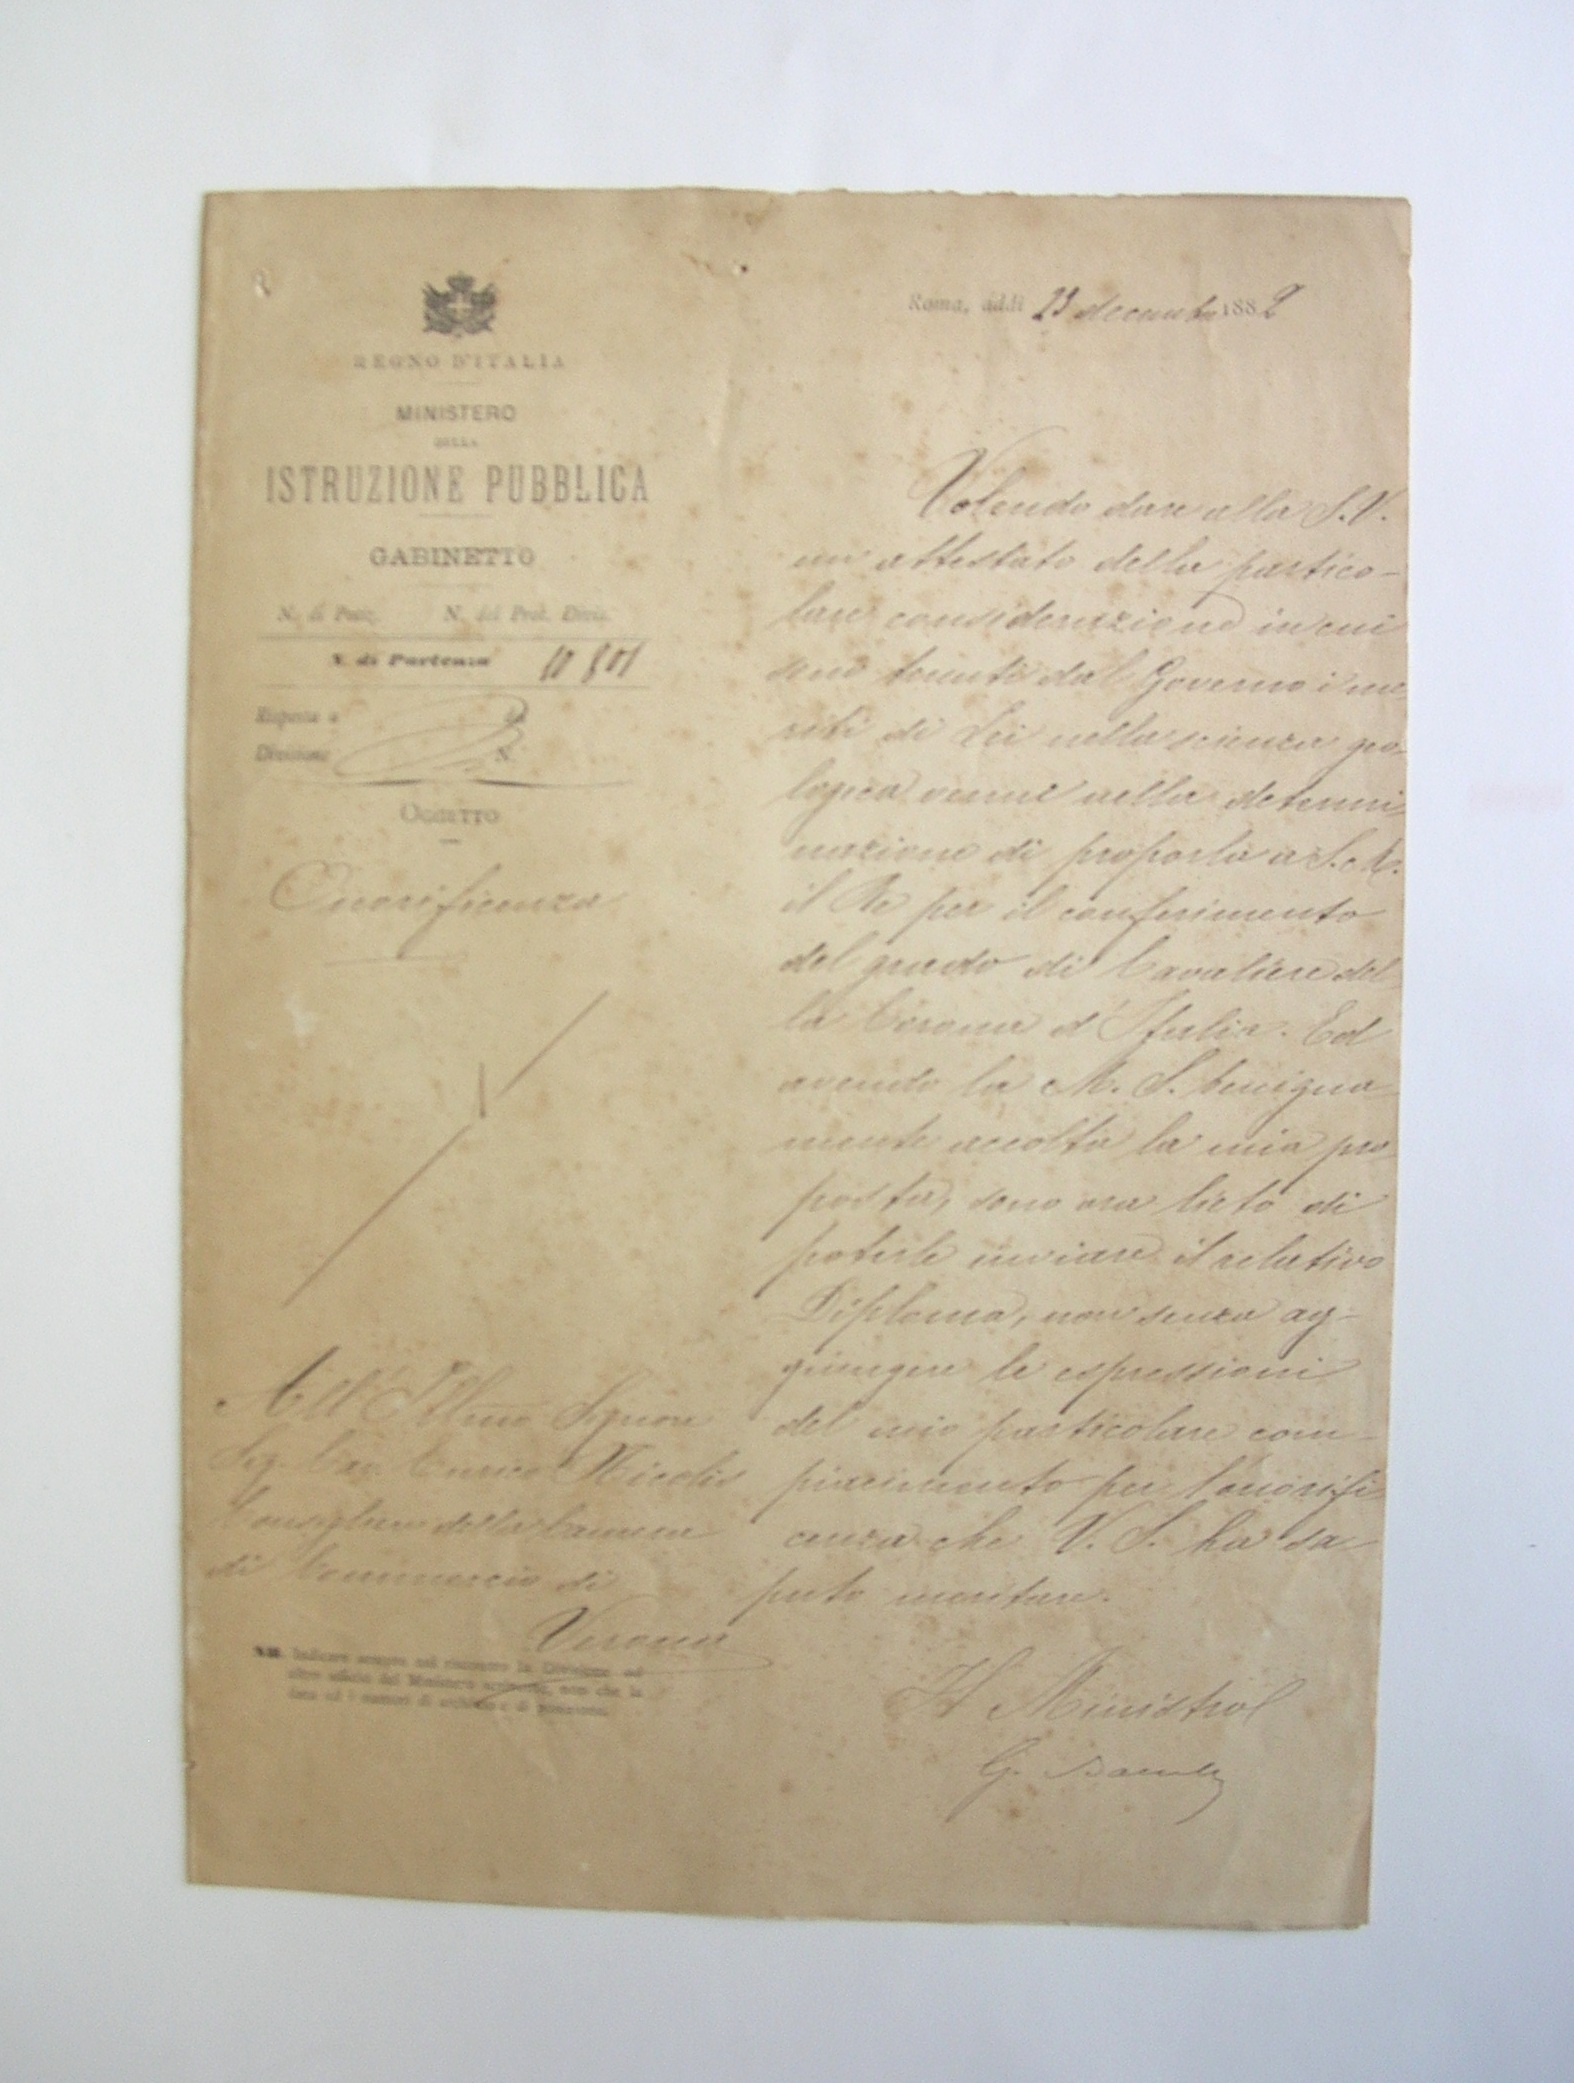 REGNO D'ITALIA
MINISTERO
DELLA
ISTRUZIONE PUBBLICA
GABINETTO
N. di Posiz. N. del Prot. Divis.
N. di Partenza
Risposta a del
Divisione N.
OGGETTO
Onorificenza
All'Illmo Signore
Sig. Cav. Enrico Nicolis
Consigliere della Camera
di Commercio di
Verona
NB. Indicare sempre nel riscontro la Divisione od
altro ufficio del Ministero scrivente, non che la
data ed i numeri di archivio e di posizione.
Roma, addì 23 decembre 1882
Volendo dare alla S.V.
un attestato della partico-
lare considerazione in cui
sono tenuti dal Governo i me-
riti di Lei nella scienza geo-
logica venni nella determi-
nazione di proporla a S.M.
il Re per il conferimento
del grado di Cavaliere del-
la Corona d'Italia. Ed
avendo la M. S. benigna-
mente accolta la mia pro-
posta, sono ora lieto di
poterle inviare il relativo
Diploma, non senza ag-
giungere le espressioni
del mio particolare com-
piacimento per l'onorifi-
cenza che V. S. ha sa-
puto meritare.
Il Ministro
G.